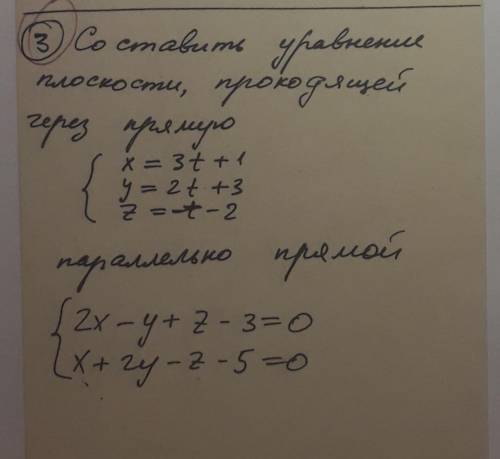 3 Составить уравнение
плоскости, проходящей
через прямую
x = 3t + 1
y = 2t + 3
z = -t - 2
параллельно прямой
2x - y + z - 3 = 0
x + 2y - z - 5 = 0